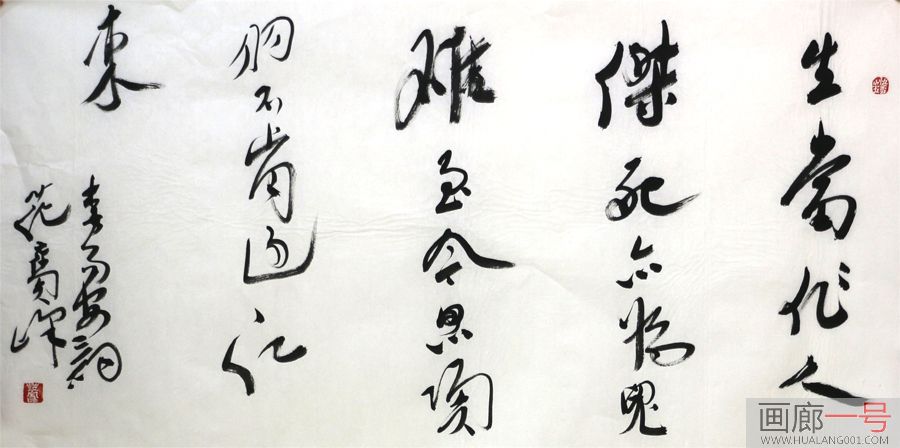 生當作人
傑死亦為鬼
雄至今思項
羽不肯過江
東
李易安詞
画廊一号
WWW.HUALANG001.COM